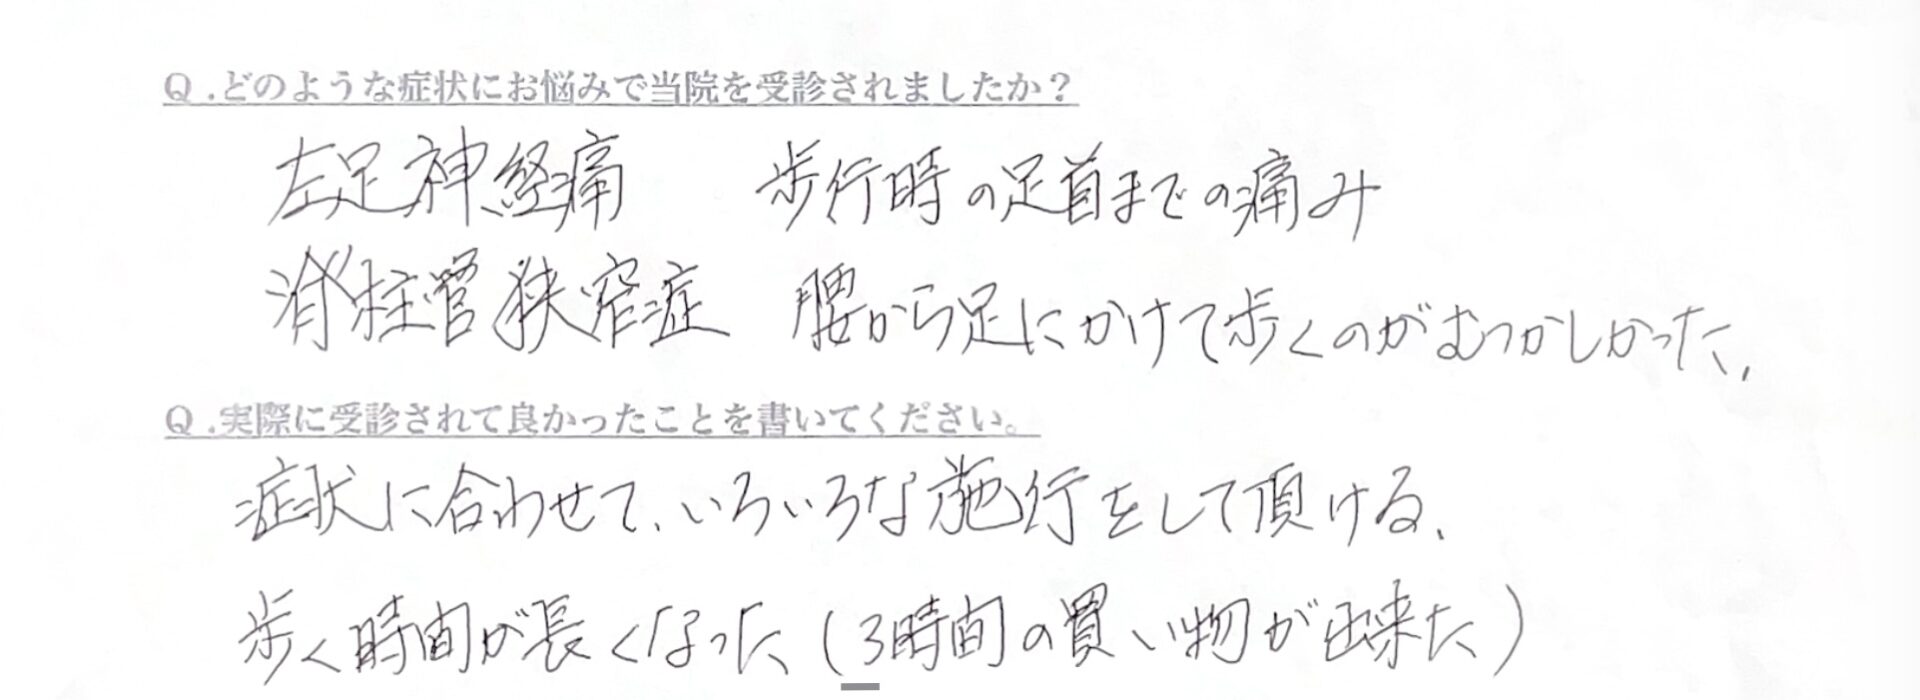 Q.どのような症状にお悩みで当院を受診されましたか?
左足神経痛　歩行時の足首までの痛み
脊柱管狭窄症　腰から足にかけて歩くのがむつかしかった、
Q.実際に受診されて良かったことを書いてください。
症状に合わせて、いろいろな施行をして頂ける、
歩く時間が長くなった(3時間の買い物が出来た)